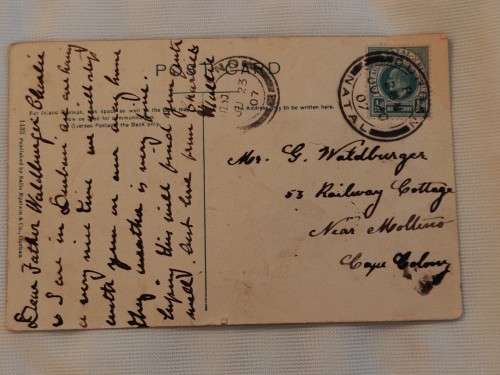 POST CARD
For Inland Postage, was space as well as the
be used for Communication
Oversea Postage the Back only.
Address only to be written here.
Dear Father Waldburger Charlie
& I are in Durban we are having
a very nice time we will stop
with you on our way home
they weather is very fine.
hoping this will find you quite
well. Best love from Charlie &
Mattie
Mr. G. Waldburger
53 Railway Cottage
Near Molteno
Cape Colony
NATAL
23
07
NATAL